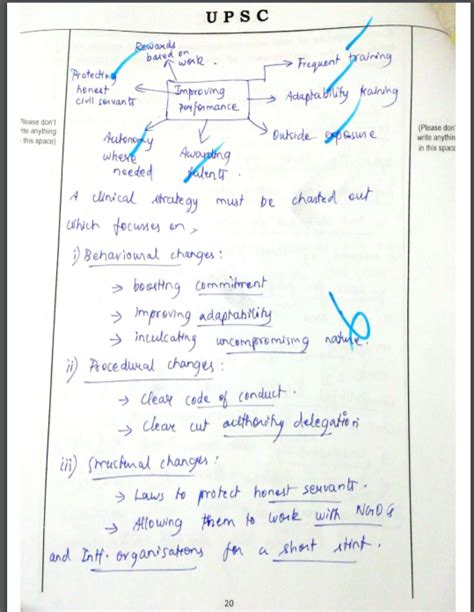 UPSC
Rewards
based on
work.
Protecting
honest
civil servants
Improving
performance
Frequent training
Adaptability training
Outside exposure
Autonomy
where
needed
Awarding
talents.
Please don't
write anything
this space)
(Please don'
write anythin
in this space
A clinical strategy must be charted out
which focusses on,
i) Behavioural changes:
→ boosting commitment
→ improving adaptability
→ inculcating uncompromising nature.
ii) Procedural changes:
→ clear code of conduct.
→ clear cut authority delegation
iii) Structural changes:
→ Laws to protect honest servants.
→ Allowing them to work with NGOG
and Intl. organisations for a short stint.
20